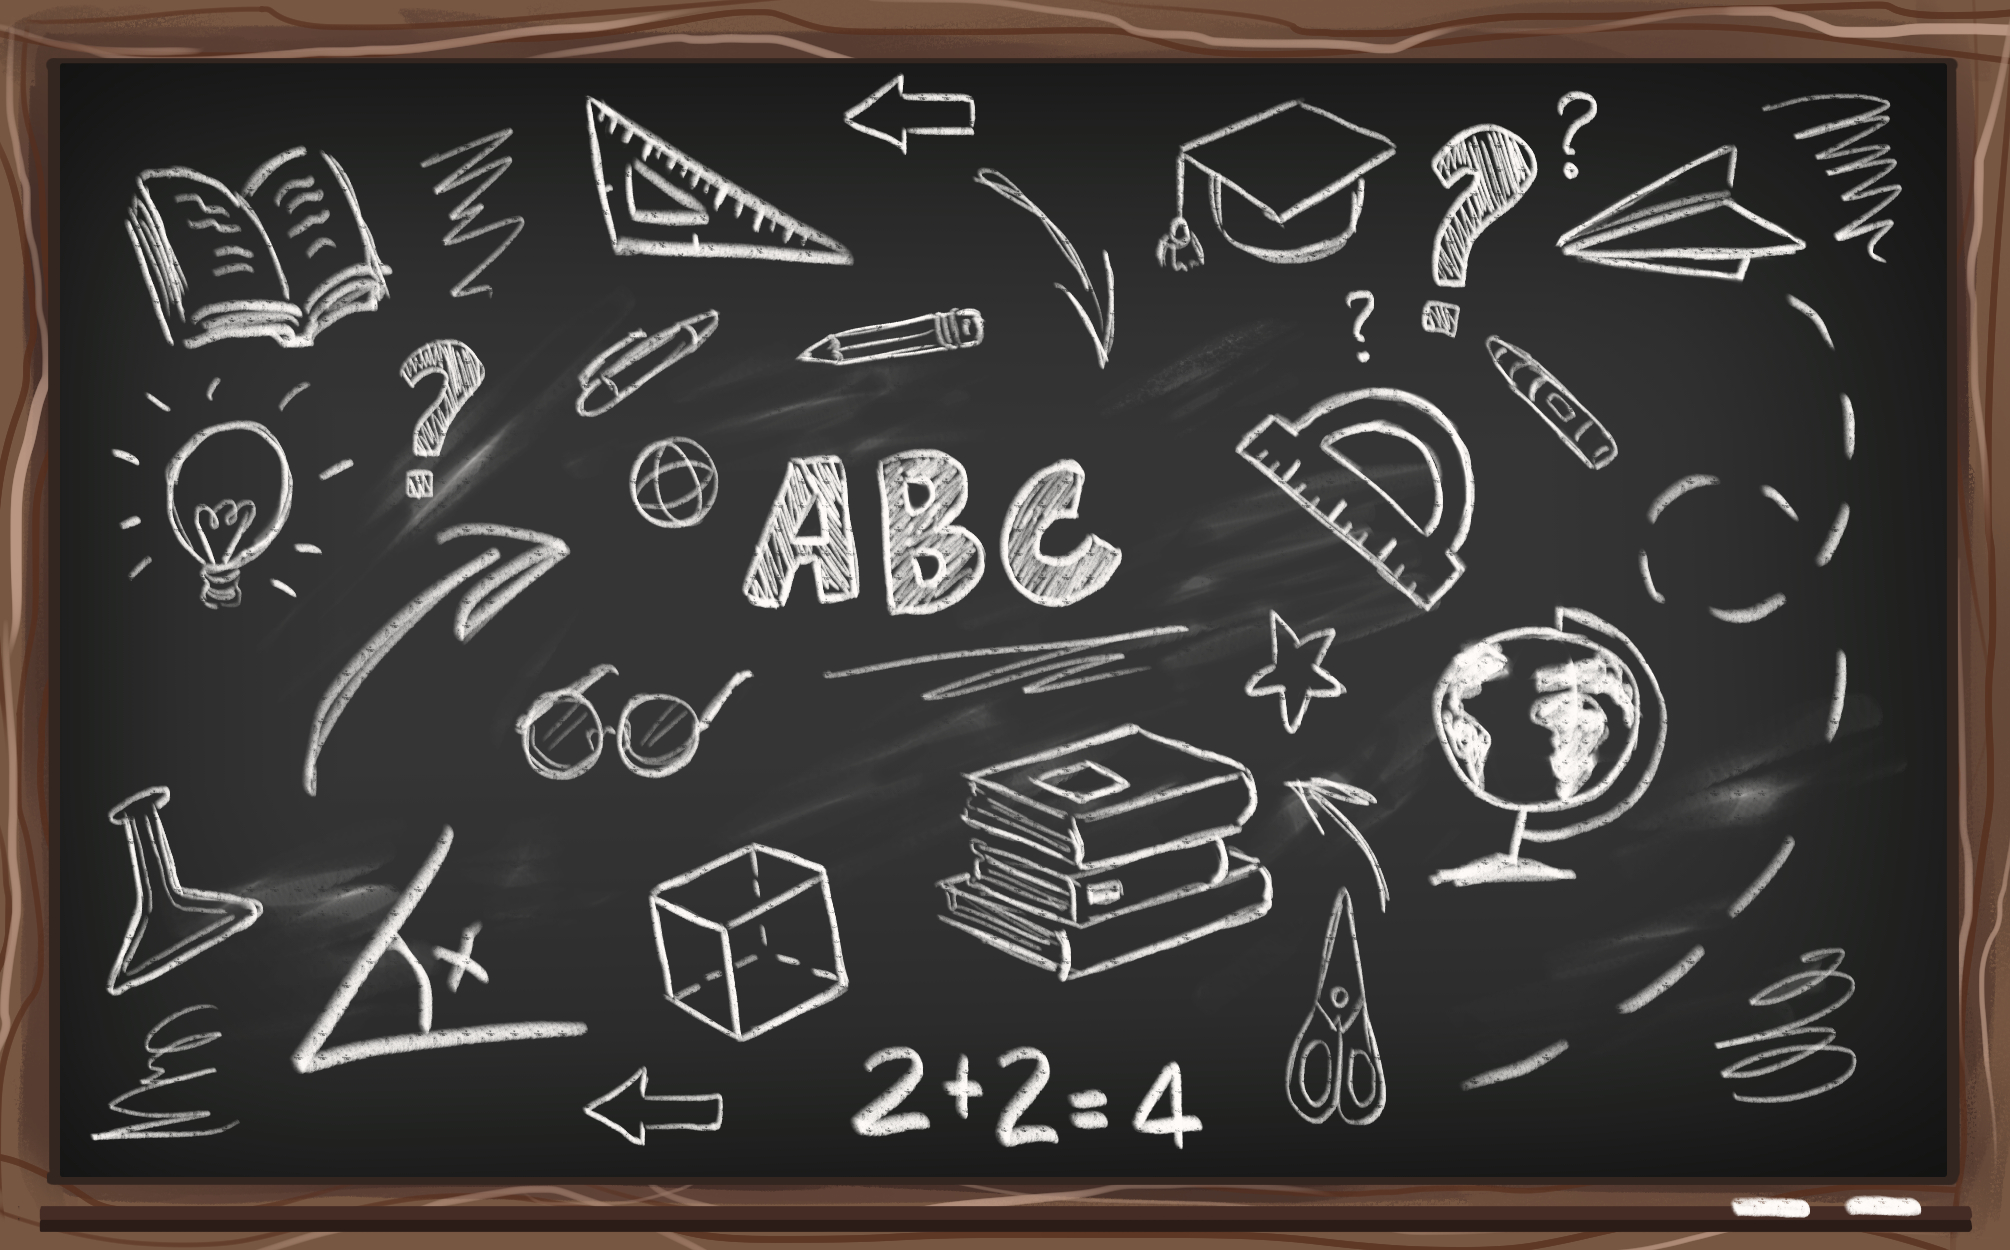 ?
?
?
?
ABC
x
2+2=4